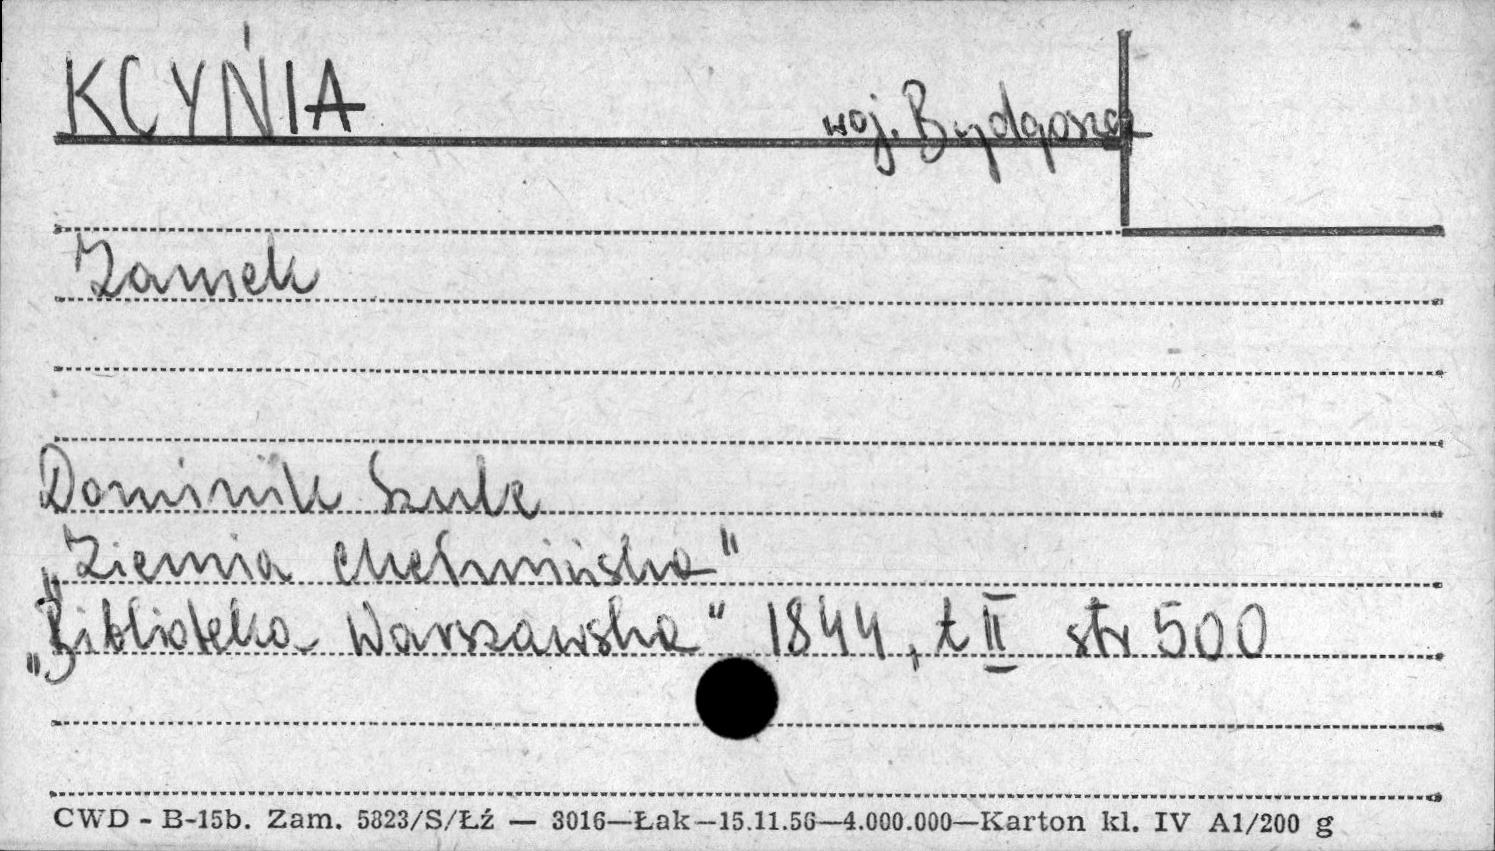 KCYŃIA
woj. Bydgoszcz
Zamek
Dominik Szulc
„Ziemia Chełmińska"
„Biblioteka Warszawska" 1844, t II str 500
CWD - B-15b. Zam. 5823/S/Łź — 3016—Łak—15.11.56—4.000.000—Karton kl. IV A1/200 g